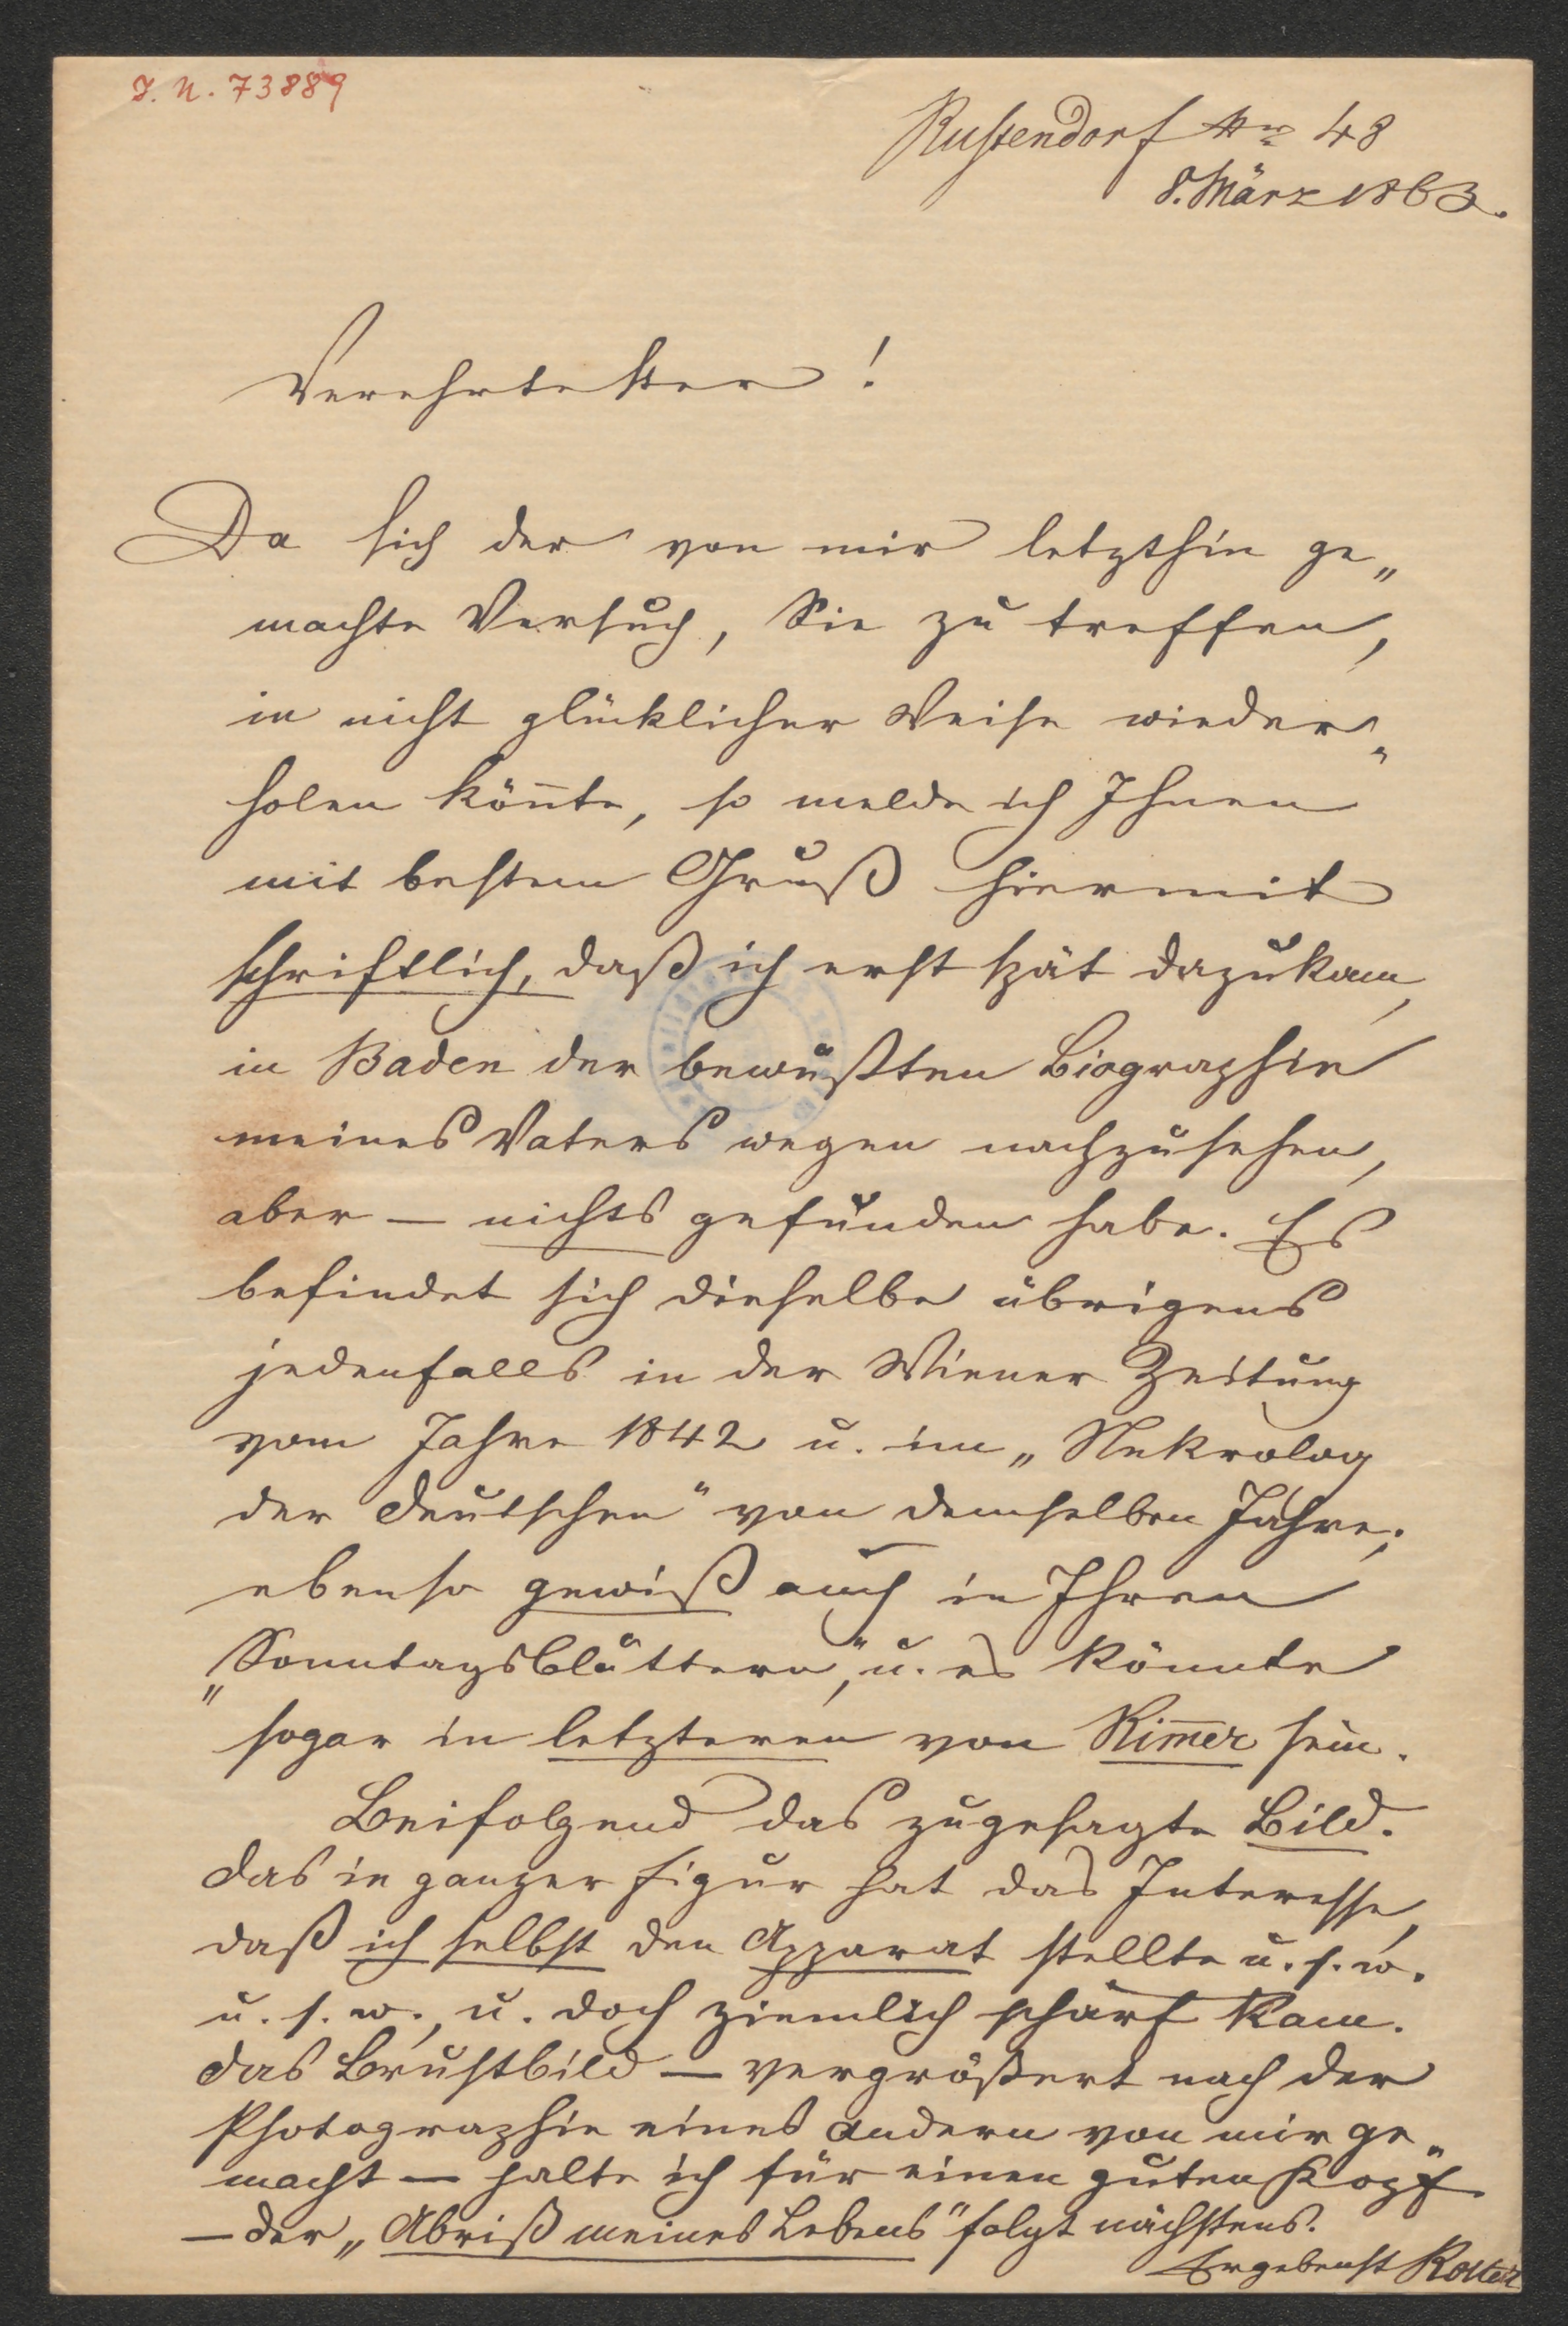 J. N. 73889
Rustendorf Nr 48
8. März 1863.
Verehrtester!
Da sich der von mir letzthin ge„
machte Versuch, Sie zu treffen,
in nicht glücklicher Weise wieder„
holen kön̄te, so melde ich Ihnen
mit bestem Gruß hiermit
schriftlich, daß ich erst spät dazukam,
in Baden der bewußten Biographie
meines Vaters wegen nachzusehen,
aber — nichts gefunden habe. Es
befindet sich dieselbe übrigens
jedenfalls in der Wiener Zeitung
vom Jahre 1842 u. im „Nekrolog
der Deutschen" von demselben Jahre;
ebenso gewiß auch in Ihren
„Sonntagsblättern", u. es könnte
sogar in letzteren von Rim̄er sein.
Beifolgend das zugesagte Bild.
Das in ganzer Figur hat das Interesse,
daß ich selbst den Apparat stellte u. s. w.
u. s. w., u. doch ziemlich scharf kam.
Das Brustbild — vergrößert nach der
Photographie eines andern von mir ge„
macht — halte ich für einen guten Kopf
— Der „Abriß meines Lebens" folgt nächstens.
Ergebenst Rotter